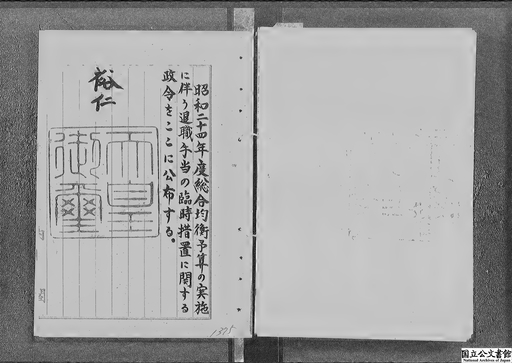 昭和二十四年度総合均衡予算の実施
に伴う退職手当の臨時措置に関する
政令をここに公布する。
裕仁
天皇
御璽
1375
国立公文書館
National Archives of Japan